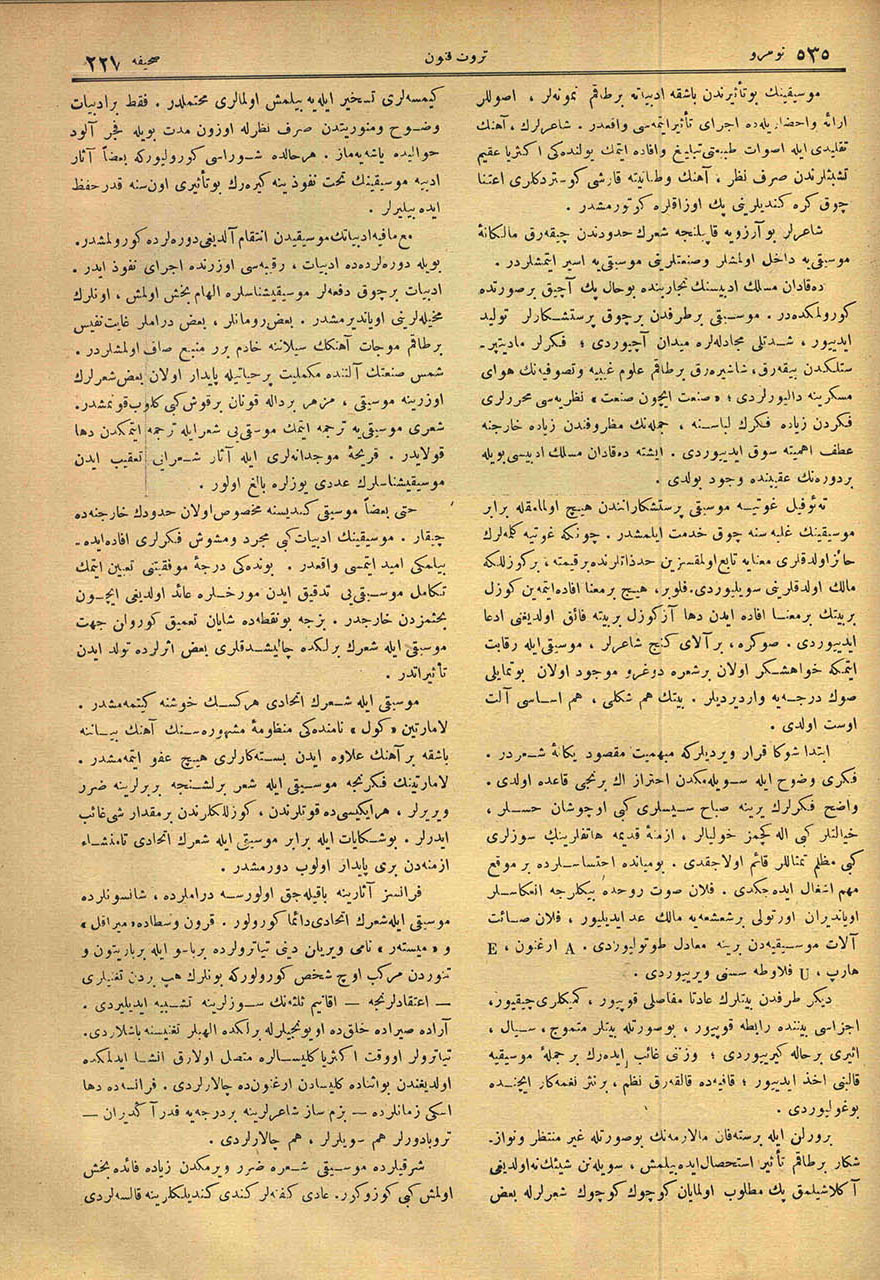 نومرو ٥٣٥
ثروت فنون
صحيفه ٢٢٧
موسيقينك بوتأثيرندن باشقه ادبياته برطاقم نمونه‌لر ، اصوللر
ارائه واحضار يله‌ده اجرای تأثيرايتمه‌سی واقعدر . شاعرلرك ، آهنك
تقليدی ايله اصوات طبيعتی تبليغ وافاده ايتمك يولنده‌کی اکثريا عقيم
تشبثلرندن صرف نظر ، آهنك وطنانيته قارشی كوستردکلری اعتنا
چوق کره کنديلرينی پك اوزاقلره کوتورمشدر .
شاعرلر بوآرزويه قاپيلنجه شعرك حدودندن چيقه‌رق مالكانهٔ
موسيقی‌يه داخل اولمشلر وصنعتلرينی موسيقی‌يه اسير ايتمشلردر .
ده‌قادان مسلك ادبيسنك تجاربنده بوحال پك آچيق برصورتده
كورولمکده‌در . موسيقی برطرفدن برچوق پرستشكارلر توليد
ايدييور ، شدتلی مجادله‌لره ميدان آچيوردی ؛ فکرلر ماديتپر-
ستلکدن بيقه‌رق، شاشيره‌رق برطاقم علوم غيبيه وتصوفيه‌نك هوای
مسکرينه داليورلردی ؛ «صنعت ايچون صنعت» نظريه‌سی محررلری
فکردن زياده فکرك لباسنه ، جمله‌نك مظروفندن زياده خارجنه
عطف اهميته سوق ايدييوردی . ايشته ده‌قادان مسلك ادبيسی بويله
بردوره‌نك عقبنده وجود بولدی .
ته‌ئوفيل غوتيه موسيقی پرستشکارانندن هيچ اولمامقله برابر
موسيقينك غلبه‌سنه چوق خدمت ايلمشدر . چونکه غوتيه کله‌لرك
حائزاولدقلری معنايه تابع اولمقسزين حدذاتلرنده‌ برقيمته ، برکوزللكه
مالك اولدقلرينی سويليوردی. فلوبر، هيچ برمعنا افاده ايتمه‌ين كوزل
بربيتك برمعنا افاده ايدن دها آزكوزل بربيته فائق اولديغنی ادعا
ايدييوردی . صوکره ، برآلای کنج شاعرلر ، موسيقی ايله رقابت
ايتمکه خواهشکر اولان برشعره دوغرو موجود اولان بوتمايلی
صوك درجه‌يه وارديرديلر . بيتك هم شکلی ، هم اساسی آلت
اوست اولدی .
ابتدا شوكا قرار ويرديلرکه مبهميت مقصود يكانهٔ شعردر .
فکری وضوح ايله سويله‌مکدن احتراز اك برنجی قاعده اولدی .
واضح فکرلرك يرينه صباح سيسلری کبی اوچوشان حسلر ،
خيالتلر کبی اله کچمز خوليالر ، ازمنهٔ قديمه هاتفلرينك سوزلری
کبی مظلم تمثاللر قائم اولاجقدی . بوميانده احتساسلرده بر موقع
مهم اشغال ايده‌جکدی . فلان صوت روحده بيکلرجه انعکاسلر
اوياندیران اورتولی برشعشعه‌يه مالك عد ايديليور ، فلان صائت
آلات موسيقيه‌دن برينه معادل طوتوليوردی . A ارغنون ، E
هارپ ، U فلاوطه سنی ويرييوردی .
ديكر طرفدن بيتلرك عادتا مفاصلی قوپيور ، کميکلری چيقيور،
اجزاسی بيننده رابطه قوپيور ، بوصورتله بيتلر متموج ، سيال ،
اثيری برحاله کيرييوردی ؛ وزنی غائب ايده‌رك بر جملهٔ موسيقيه
قالبنی اخذ ايدييور ؛ قافيه‌ده قالقه‌رق نظم ، برنثر نغمه‌کار ايچنده
بوغوليوردی .
برورلن ايله برسته‌فان مالارمه‌نك بوصورتله غير منتظر ونواز-
شكار برطاقم تأثير استحصال ايده‌بيلمش ، سويله‌نن شيئك نه‌اولديغی
آكلاشيلمق پك مطلوب اولمايان کوچوك کوچوك شعرلرله بعض
كيمسه‌لری تسخير ايله‌يه بيلمش اولمالری محتملدر . فقط بر ادبيات
وضوح ومنوريتدن صرف نظرله اوزون مدت بويله فجر آلود
حواليده ياشه‌يه‌ماز . هرحالده شوراسی كورولیورکه بعضاً آثار
ادبيه موسيقينك تحت نفوذينه کيره‌رك بوتأثيری اون‌سنه قدر حفظ
ايده بيليرلر .
مع‌مافيه ادبياتك موسيقيدن انتقام آلديغی دوره‌لرده كورولمشدر.
بويله دوره‌لرده‌ده ادبيات ، رقيبه‌سی اوزرنده اجرای نفوذ ايدر .
ادبيات برچوق دفعه‌لر موسيقيشناسلره الهام بخش اولمش ، اونلرك
مخيله‌لرينی اويانديرمشدر . بعض‌رومانلر ، بعض دراملر غايت‌نفيس
برطاقم موجات آهنكك سيلاننه خادم برر منبع صاف اولمشلردر .
شمس صنعتك آلتنده مکمليت پرحياتيله پايدار اولان بعض شعرلرك
اوزرينه موسيقی ، مزهر برداله قونان برقوش‌کبی کلوب‌قونمشدر.
شعری موسيقی‌يه ترجمه ايتمك موسيقی‌يی شعرايله ترجمه ايتمکدن دها
قولايدر . قريحهٔ موجدانه‌لری ايله آثار شعرايی تعقيب ايدن
موسيقيشناسلرك عددی يوزلره بالغ اولور .
حتی بعضاً موسيقی کنديسنه مخصوص‌اولان حدودك خارجنه‌ده
چيقار . موسيقينك ادبيات‌کبی مجرد ومشوش فکرلری افاده‌ايده-
بيلمکی اميد ايتمسی واقعدر . بونده‌کی درجهٔ موفقيتنی تعيين ايتمك
تکامل موسيقی‌يی تدقيق ايدن مورخلره عائد اولديغی ايچون
بحثمزدن خارجدر . بزجه بونقطه‌ده شايان تعميق کورولن جهت
موسيقی ايله شعرك برلکده چاليشدقلری بعض اثرلرده تولد ايدن
تأثيراتدر .
موسيقی ايله شعرك اتحادی هرکسك خوشنه کيتمه‌مشدر .
لامارتين «كول» نامنده‌کی منظومهٔ مشهوره‌سنك آهنك بياننه
باشقه برآهنك علاوه ايدن بسته‌کارلری هيچ عفو ايتمه‌مشدر .
لامارتينك فکرنجه موسيقی ايله شعر برلشنجه بربرلرينه ضرر
ويررلر ، هرايکيسی‌ده قوتلرندن ، کوزللکلرندن برمقدار شی‌غائب
ايدرلر . بوشکايات ايله برابر موسيقی ايله شعرك اتحادی تامنشاء
ازمنه‌دن بری پايدار اولوب دورمشدر .
فرانسز آثارينه باقيله‌جق اولورسه دراملرده ، شانسونلرده
موسيقی ايله‌شعرك اتحادی‌دائما کورولور . قرون وسطاده«ميراقل»
و «ميستەر» نامی ويريلن دينی تياترولرده برباسو ايله برباريتون و
تنوردن مركب اوچ شخص کورولورکه بونلرك هپ بردن تغنيلری
— اعتقادلرنجه — اقانيم ثلثه‌نك سوزلرينه تشبيه ايديليردی .
آراده صيراده خلق‌ده اويونجيلرله برلکده الهيلر تغنيسنه باشلاردی.
تياترولر اووقت اکثريا‌کليسالره متصل اولارق انشا ايدلمکده
اولديغندن بواثناده کليسادن ارغنون‌ده چالارلردی . فرانسه‌ده دها
اسکی زمانلرده — بزم ساز شاعرلرينه بردرجه‌يه قدر آكديران —
تروبادورلر هم سويلرلر ، هم چالارلردی .
شرقيلرده موسيقی شعره ضرر ويرمکدن زياده فائده‌بخش
اولمش کبی كوزوكور. عادی کفته‌لر کندی کنديلکلرينه قالسه‌لردی